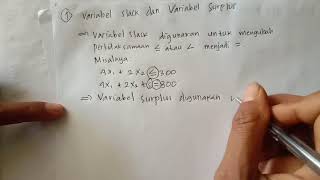 ① Variabel slack dan Variabel Surplus
⇒ Variabel slack digunakan untuk mengubah
pertidaksamaan ≤ atau < menjadi =
Misalnya
4x₁ + 2x₂ ≤ 800
4x₁ + 2x₂ + S = 800
⇒ Variabel surplus digunakan